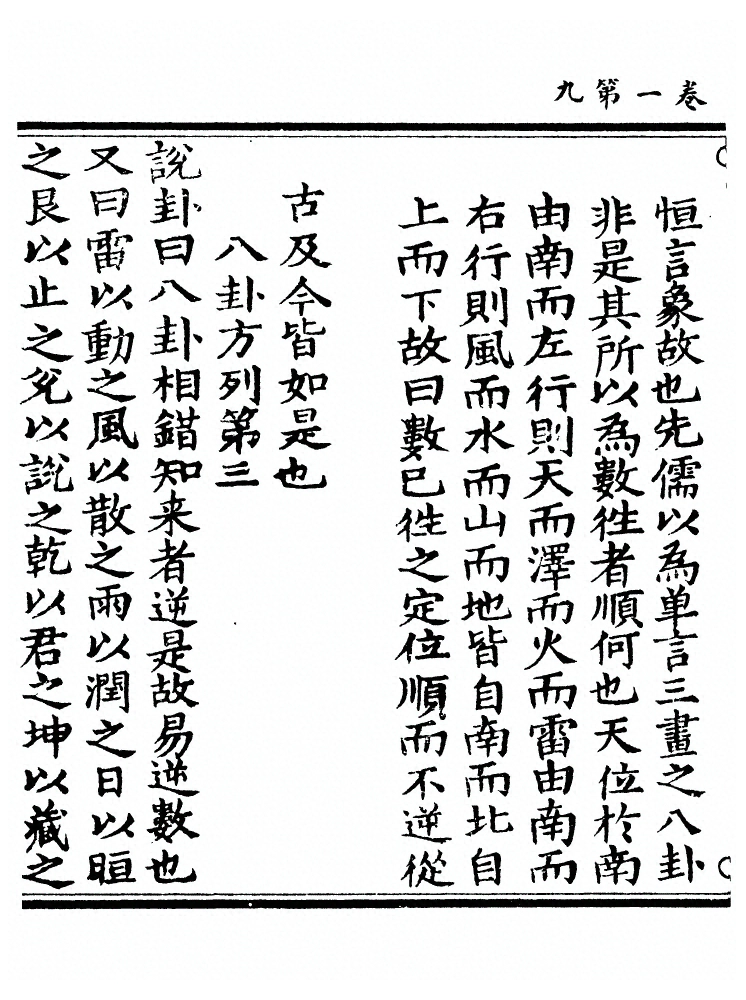 卷一第九
恒言象故也先儒以為单言三畫之八卦
非是其所以為數徃者順何也天位於南
由南而左行則天而澤而火而雷由南而
右行則風而水而山而地皆自南而北自
上而下故曰數已徃之定位順而不逆從
古及今皆如是也
八卦方列第三
說卦曰八卦相錯知来者逆是故易逆數也
又曰雷以動之風以散之雨以潤之日以晅
之艮以止之兊以說之乾以君之坤以藏之